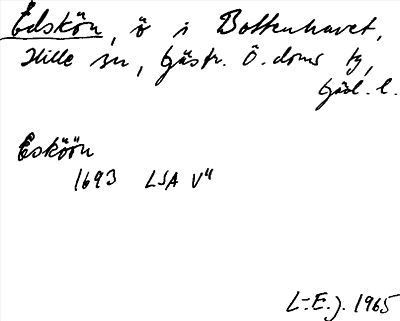 Edskön, ö i Bottenhavet,
Hille sn, Gästr. Ö. doms tg,
Gävl. l.
Esköön
1693 LSA V11
L-E. J. 1965